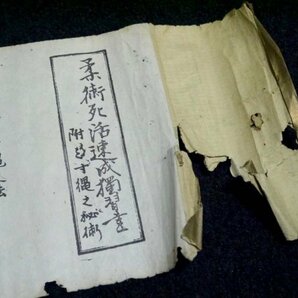 柔術死活速成獨習書
附 繩之秘術